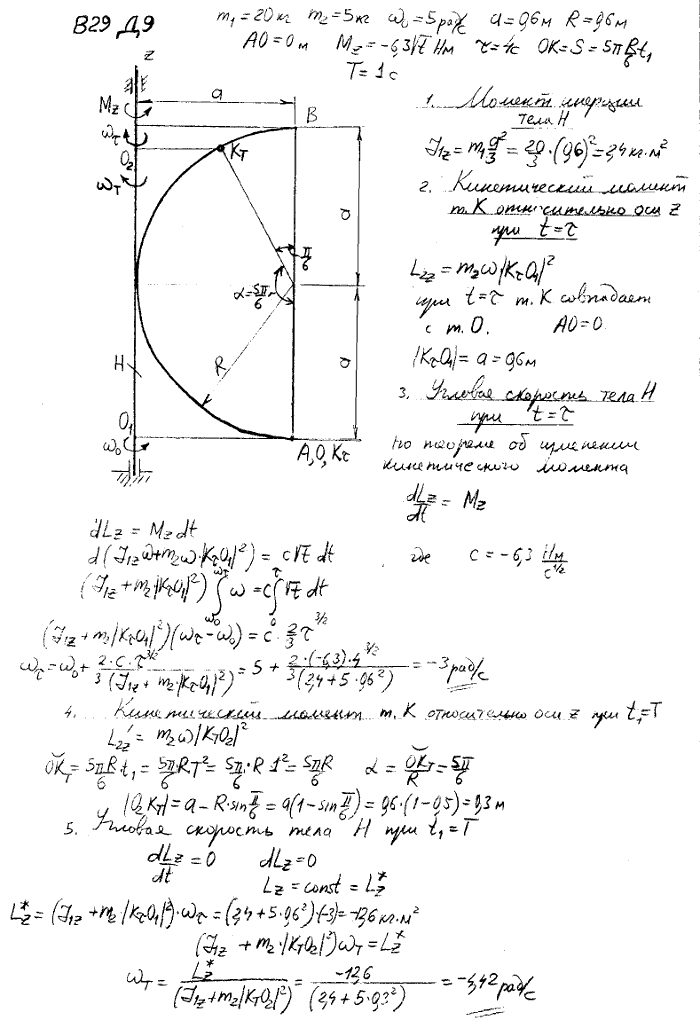 В29 Д9
m₁=20кг m₂=5кг ω₀=5рад/с a=0,6м R=0,6м
AO=0м Mz=-6,3√t Нм τ=4с OK=S=5πR/6 t₁
T=1с
z
a
B
Mz
ωτ
O₂
Kт
ωт
π/6
α=5π/6
a
a
R
H
O₁
ω₀
A,O,Kτ
1. Момент инерции
тела Н
J₁z=m₁a²/3=20/3·(0,6)²=2,4кг·м²
2. Кинетический момент
т.К относительно оси z
при t=τ
L₂z=m₂ω|KτO₁|²
при t=τ т.К совпадает
с т.О. AO=0
|KτO₁|=a=0,6м
3. Угловая скорость тела Н
при t=τ
по теореме об изменении
кинетического момента
dLz/dt=Mz
dLz=Mzdt
d(J₁zω+m₂ω·|KτO₁|²)=c√t dt где c=-6,3 Нм/с^1/2
(J₁z+m₂|KτO₁|²)∫ω₀^ωτ ω=c∫₀^τ√t dt
(J₁z+m₂|KτO₁|²)(ωτ-ω₀)=c·2/3 τ^3/2
ωτ=ω₀+2·c·τ^3/2/3(J₁z+m₂·|KτO₁|²)=5+2·(-6,3)·4^3/2/3(2,4+5·0,6²)=-3рад/с
4. Кинетический момент т.К относительно оси z при t₁=T
L₂z'=m₂ω|KтO₂|²
OKт=5πR/6 t₁=5πR/6 T²=5π/6·R·1²=5πR/6 α=OKт/R=5π/6
|O₂Kт|=a-R·sinπ/6=a(1-sinπ/6)=0,6·(1-0,5)=0,3м
5. Угловая скорость тела Н при t₁=T
dLz/dt=0 dLz=0
Lz=const=Lz*
Lz*=(J₁z+m₂·|KτO₁|²)·ωτ=(2,4+5·0,6²)·(-3)=-12,6кг·м²
(J₁z+m₂·|KтO₂|²)ωт=Lz*
ωт=Lz*/(J₁z+m₂|KтO₂|²)=-12,6/(2,4+5·0,3²)=-4,42рад/с